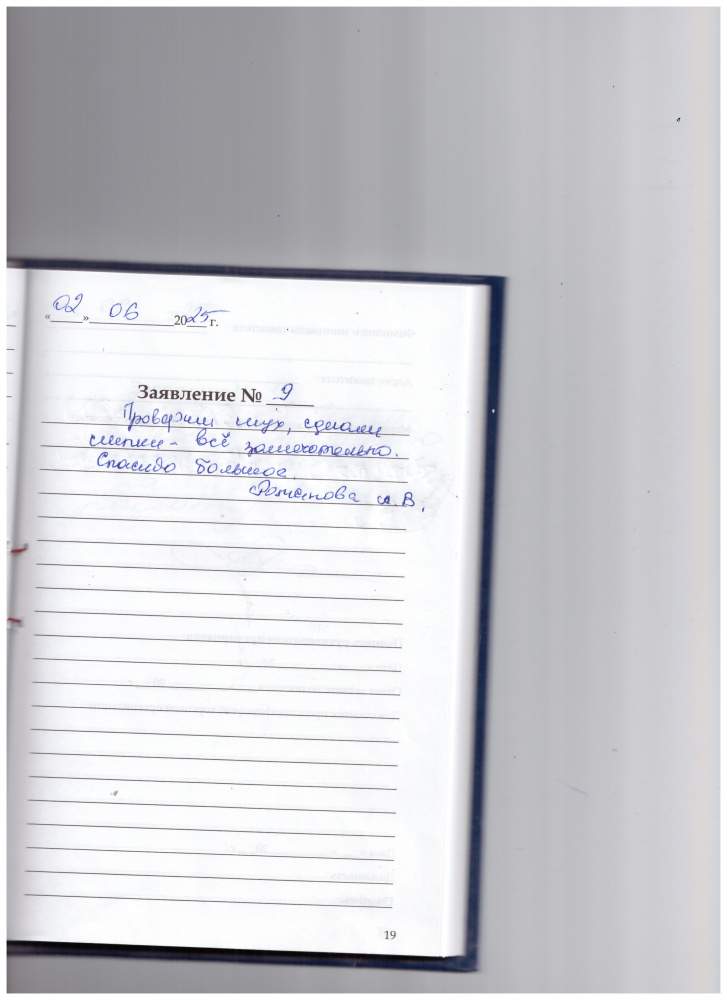 «02» 06 2025 г.
Заявление № 9
Проверили слух, сделали
слепки - всё замечательно.
Спасибо большое.
Романова А.В.
19